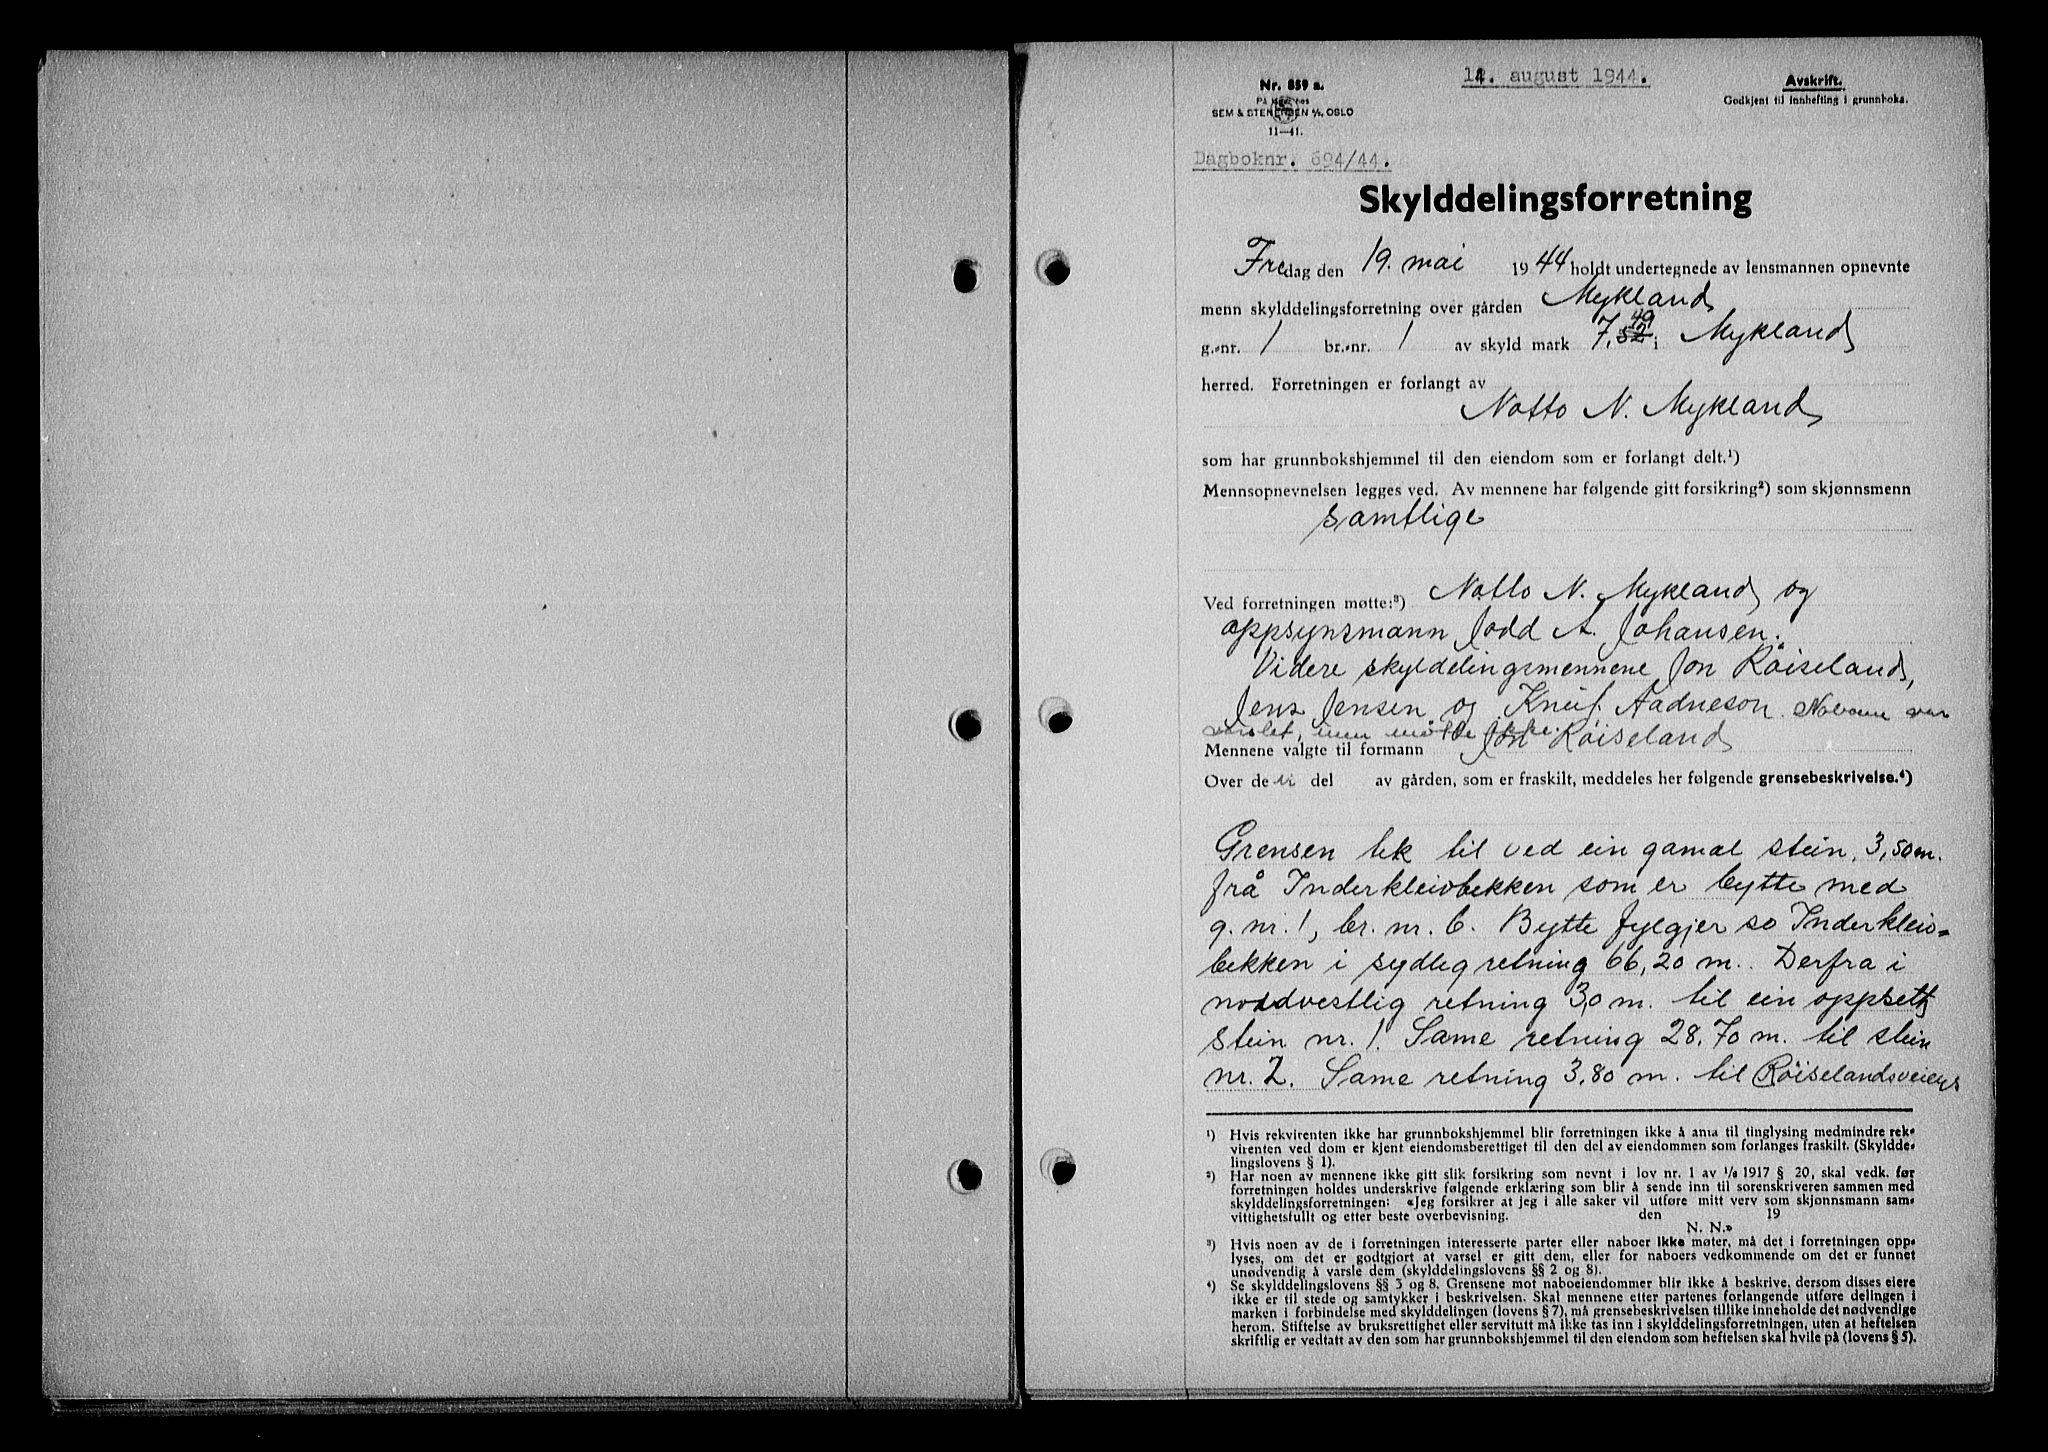 Nr. 859 a.
På lager hos
SEM & STENERSEN A/S, OSLO
11—41.
14. august 1944.
Avskrift.
Godkjent til innhefting i grunnboka.
Dagboknr. 694/44.
Skylddelingsforretning
Fredag den 19. mai 1944 holdt undertegnede av lensmannen opnevnte
menn skylddelingsforretning over gården Mykland
g.-nr. 1 br.-nr. 1 av skyld mark 7,49 i Mykland
herred. Forretningen er forlangt av
Notto N. Mykland
som har grunnbokshjemmel til den eiendom som er forlangt delt.¹)
Mennsopnevnelsen legges ved. Av mennene har følgende gitt forsikring²) som skjønnsmenn
samtlige
Ved forretningen møtte:³) Notto N. Mykland og
oppsynsmann Jodd A. Johansen.
Videre skyldelingsmennene Jon Röiseland,
Jens Jensen og Knut Aadneson. Naboene var
varslet, men møtte ikke.
Mennene valgte til formann Jon Röiseland
Over de ni del av gården, som er fraskilt, meddeles her følgende grensebeskrivelse.⁴)
Grensen tek til ved ein gamal stein, 3,50 m.
frå Inderkleivbekken som er bytte med
g. nr. 1, br. nr. 6. Bytte fylgjer so Inderkleiv-
bekken i sydleg retning 66,20 m. Derfra i
nordvestlig retning 3,0 m. til ein oppsett
stein nr. 1. Same retning 28,70 m. til stein
nr. 2. Same retning 3,80 m. til Röiselandsveiens
¹) Hvis rekvirenten ikke har grunnbokshjemmel blir forretningen ikke å anta til tinglysing medmindre rek-
virenten ved dom er kjent eiendomsberettiget til den del av eiendommen som forlanges fraskilt. (Skyldde-
lingslovens § 1).
²) Har noen av mennene ikke gitt slik forsikring som nevnt i lov nr. 1 av 1/6 1917 § 20, skal vedk. før
forretningen holdes underskrive følgende erklæring som blir å sende inn til sorenskriveren sammen med
skylddelingsforretningen: «Jeg forsikrer at jeg i alle saker vil utføre mitt verv som skjønnsmann sam-
vittighetsfullt og etter beste overbevisning. den 19
N. N.»
³) Hvis noen av de i forretningen interesserte parter eller naboer ikke møter, må det i forretningen opp-
lyses, om det er godtgjort at varsel er gitt dem, eller for naboers vedkommende om det er funnet
unødvendig å varsle dem (skylddelingslovens §§ 2 og 8).
⁴) Se skylddelingslovens §§ 3 og 8. Grensene mot naboeiendommer blir ikke å beskrive, dersom disses eiere
ikke er til stede og samtykker i beskrivelsen. Skal mennene etter partenes forlangende utføre delingen i
marken i forbindelse med skylddelingen (lovens § 7), må grensebeskrivelsen tillike inneholde det nødvendige
herom. Stiftelse av bruksrettighet eller servitutt må ikke tas inn i skylddelingsforretningen, uten at heftelsen
skriftlig er vedtatt av den som har grunnbokshjemmel til den eiendom som heftelsen skal hvile på (lovens § 5).